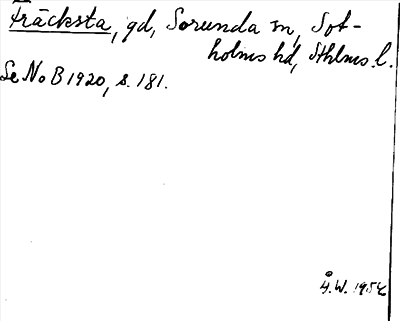 Fräcksta, gd, Sorunda sn, Sot-
holms hd, Sthlms l.
Se NoB 1920, s. 181.
Å.W. 1954